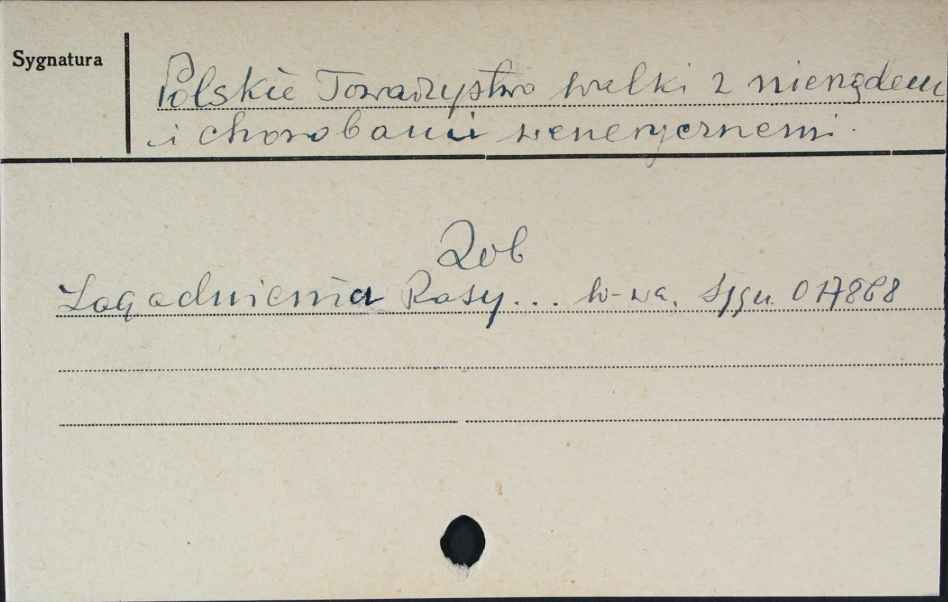 Sygnatura
Polskie Towarzystwo walki z nierządem
i chorobami wenerycznemi.
Zob
Zagadnienia Rasy... W-wa. Sygn. 017868